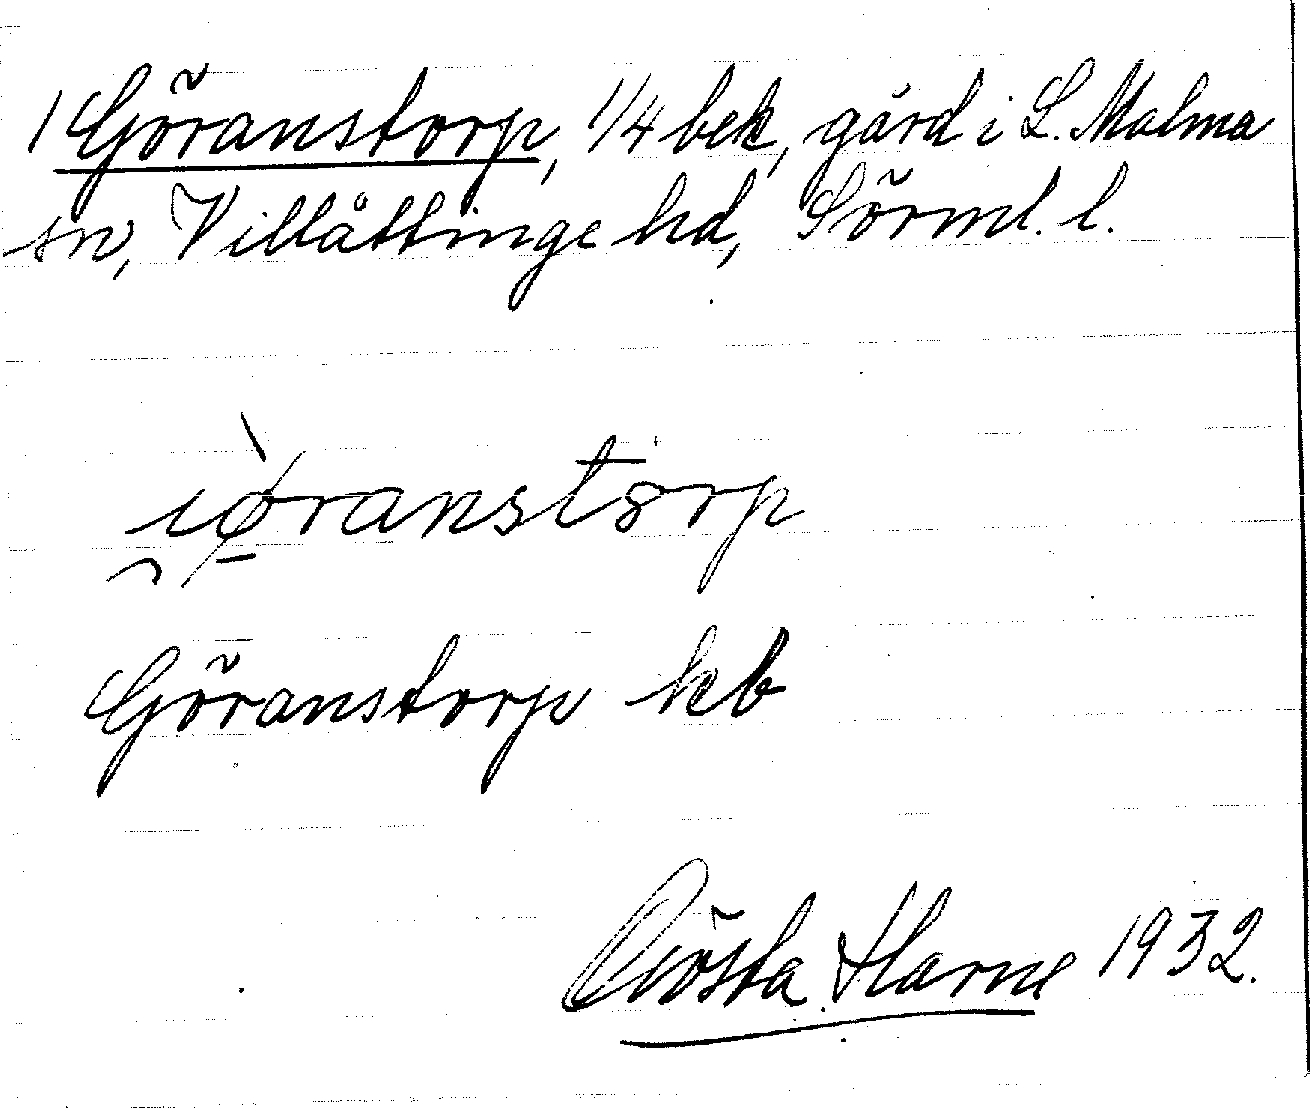 1 Göranstorp, 1/4 bek, gård i L. Malma
sn, Villåttinge hd, Sörml. l.
i̯ø̱̀ranstorp
Göranstorp kb
Gösta Harne 1932.